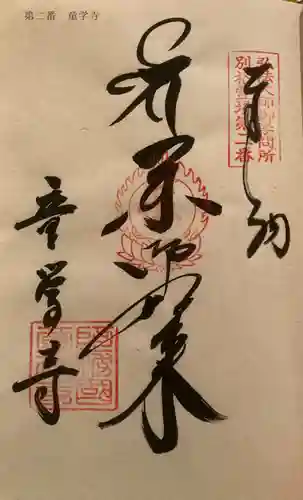 第二番 童学寺
弘法大師御学問所
別格霊場第二番
奉納
薬師如来
童学寺